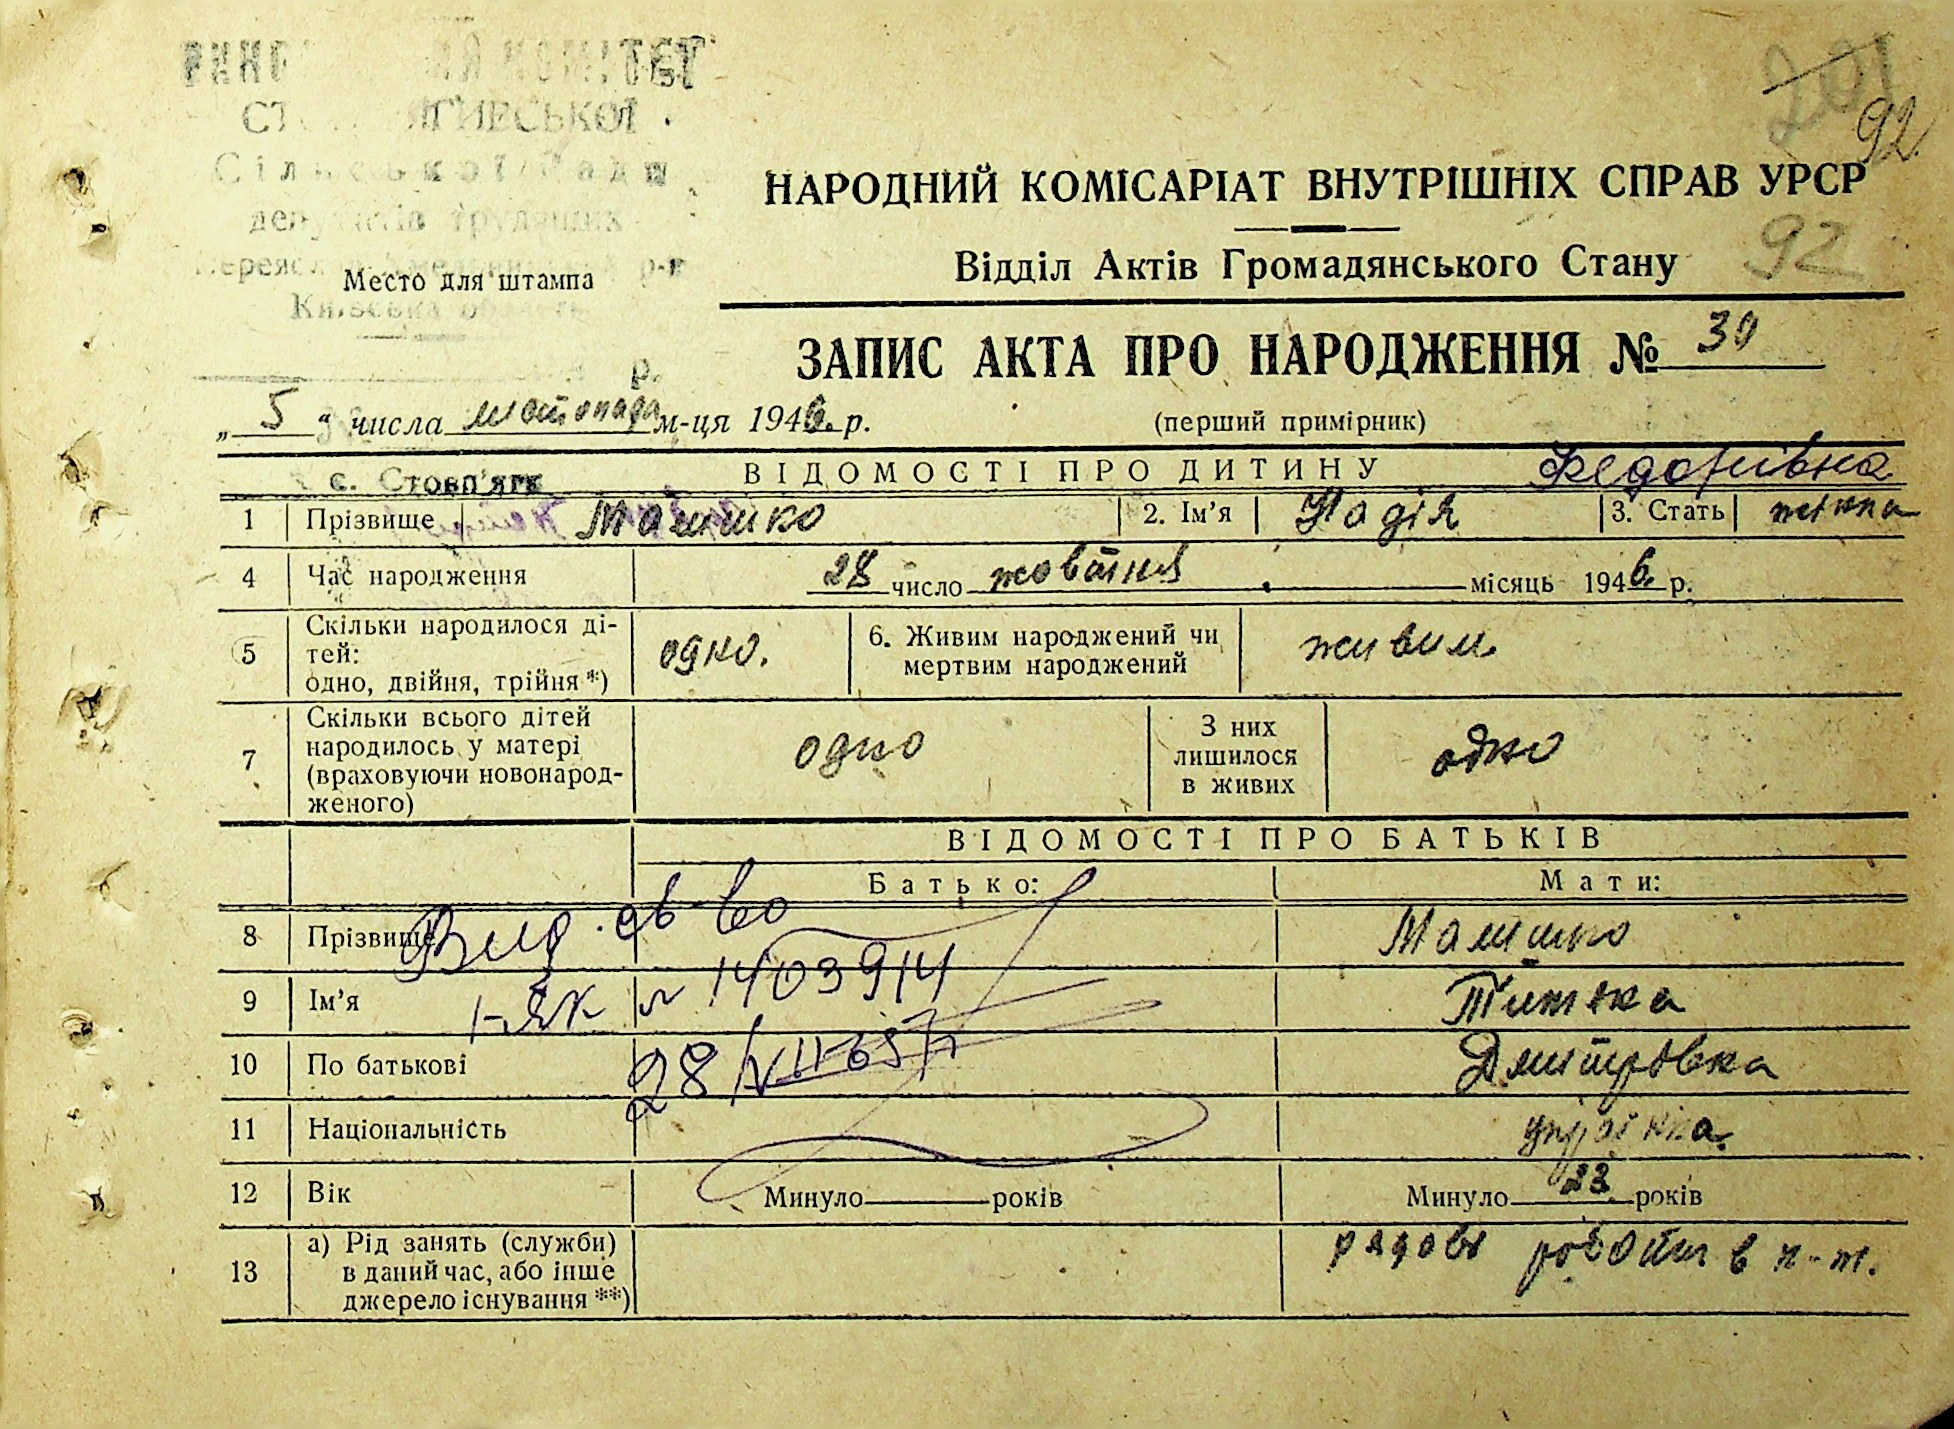 201
92
НАРОДНИЙ КОМІСАРІАТ ВНУТРІШНІХ СПРАВ УРСР
92
Відділ Актів Громадянського Стану
Сільської Ради
депутатів трудящих
р-н
Место для штампа
Київська область
р.
ЗАПИС АКТА ПРО НАРОДЖЕННЯ № 30
„ 5 “ числа листопада м-ця 1946. р.
(перший примірник)
с. Стовп'яги
ВІДОМОСТІ ПРО ДИТИНУ
Федорівна
1 Прізвище Малишко 2. Ім'я Надія 3. Стать жіноча
4 Час народження 28 число жовтня місяць 1946. р.
5 Скільки народилося ді-
тей:
одно, двійня, трійня*) одно. 6. Живим народжений чи
мертвим народжений живим
7 Скільки всього дітей
народилось у матері
(враховуючи новонарод-
женого) одно З них
лишилося
в живих одно
ВІДОМОСТІ ПРО БАТЬКІВ
Батько: Мати:
8 Прізвище Малишко
Вид. св-во
9 Ім'я Тетяна
№ 1403914
10 По батькові Дмитровна
28/VII-65
11 Національність українка
12 Вік Минуло років Минуло 23 років
13 а) Рід занять (служби)
в даний час, або інше
джерело існування**) рядові роботи в к-ті.